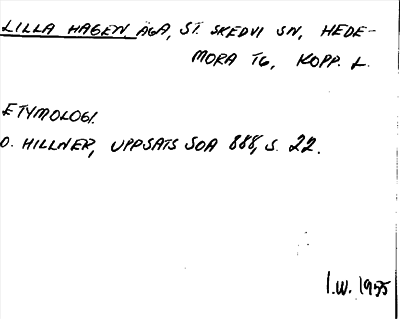 LILLA HAGEN, ÄGA, ST. SKEDVI SN, HEDE-
MORA TG, KOPP. L.
ETYMOLOGI.
O. HILLNER, UPPSATS SOA 888, S. 22.
I.W. 1975